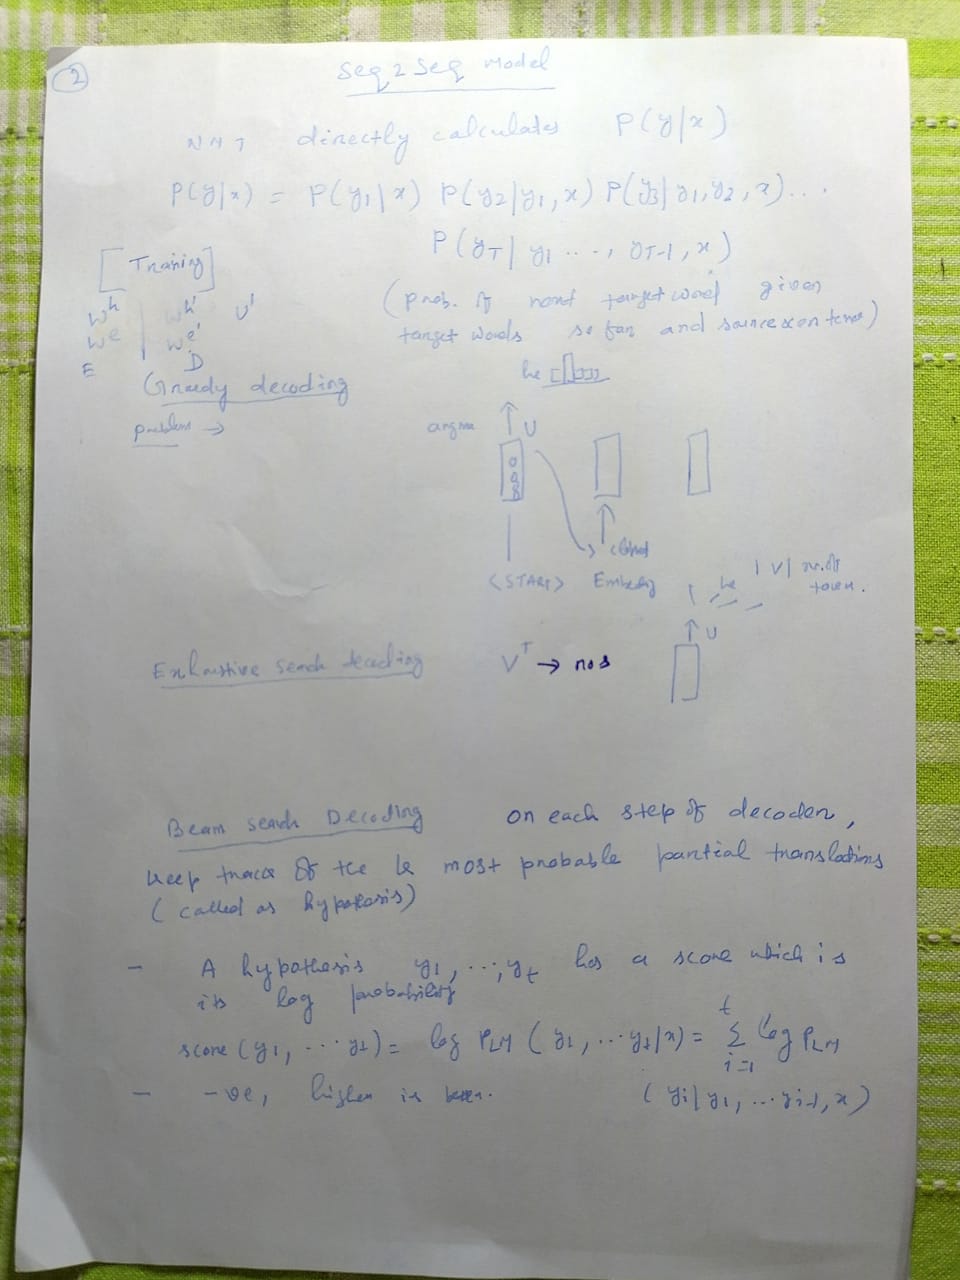 2
Seq2Seq Model
NMT directly calculates P(y|x)
P(y|x) = P(y1|x) P(y2|y1,x) P(y3|y1,y2,x)...
P(yT|y1 ..., yT-1,x)
[Training]
(prob. of next target word given
target words so far and source sentence)
Wh | Wh' U'
We | We'
E D
Greedy decoding
problem →
he
argmax U
<START> Embedding
he |V| no. of
token.
U
Exhaustive search decoding V^T → nos
Beam search Decoding on each step of decoder,
keep track of the k most probable partial translations
(called as hypothesis)
- A hypothesis y1, ..., yt has a score which is
its log probability
score(y1, ... yt) = log PLM (y1, ... yt|x) = t Σ i=1 log PLM
(yi|y1, ... yi-1, x)
- -ve, higher is better.